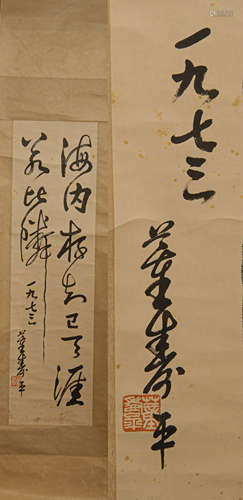 海内存知己天涯
若比隣
一九七三
董寿平
一九七三
董寿平